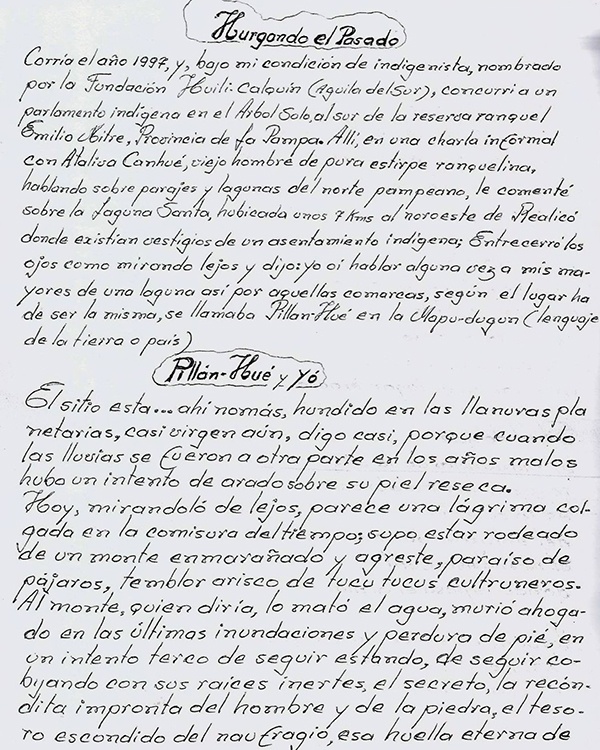 Hurgando el Pasado
Corría el año 1997, y, bajo mi condición de indigenista, nombrado
por la Fundación Huili-Calquín (Aguila del Sur), concurrí a un
parlamento indígena en el Arbol Solo, al sur de la reserva ranquel
Emilio Mitre, Provincia de La Pampa. Allí, en una charla informal
con Ataliva Canhué, viejo hombre de pura estirpe ranquelina,
hablando sobre parajes y lagunas del norte pampeano, le comenté
sobre la Laguna Santa, hubicada unos 7 Kms al noroeste de Realicó
donde existían vestigios de un asentamiento indígena; Entrecerró los
ojos como mirando lejos y dijo: yo oí hablar alguna vez a mis ma-
yores de una laguna así por aquellas comarcas, según el lugar ha
de ser la misma, se llamaba Pillán-Hué en la Mapu-dugun (lenguaje
de la tierra o país)
Pillán-Hué y Yó
El sitio esta... ahí nomás, hundido en las llanuras pla
netarias, casi virgen aún, digo casi, porque cuando
las lluvias se fueron a otra parte en los años malos
hubo un intento de arado sobre su piel reseca.
Hoy, mirandoló de lejos, parece una lágrima col-
gada en la comisura del tiempo; supo estar rodeado
de un monte enmarañado y agreste, paraíso de
pájaros, temblor arisco de tucu tucus cultruneros.
Al monte, quien diría, lo mató el agua, murió ahoga-
do en las últimas inundaciones y perdura de pié, en
un intento terco de seguir estando, de seguir co-
bijando con sus raices inertes, el secreto, la recón-
dita impronta del hombre y de la piedra, el teso-
ro escondido del naufragio, esa huella eterna de